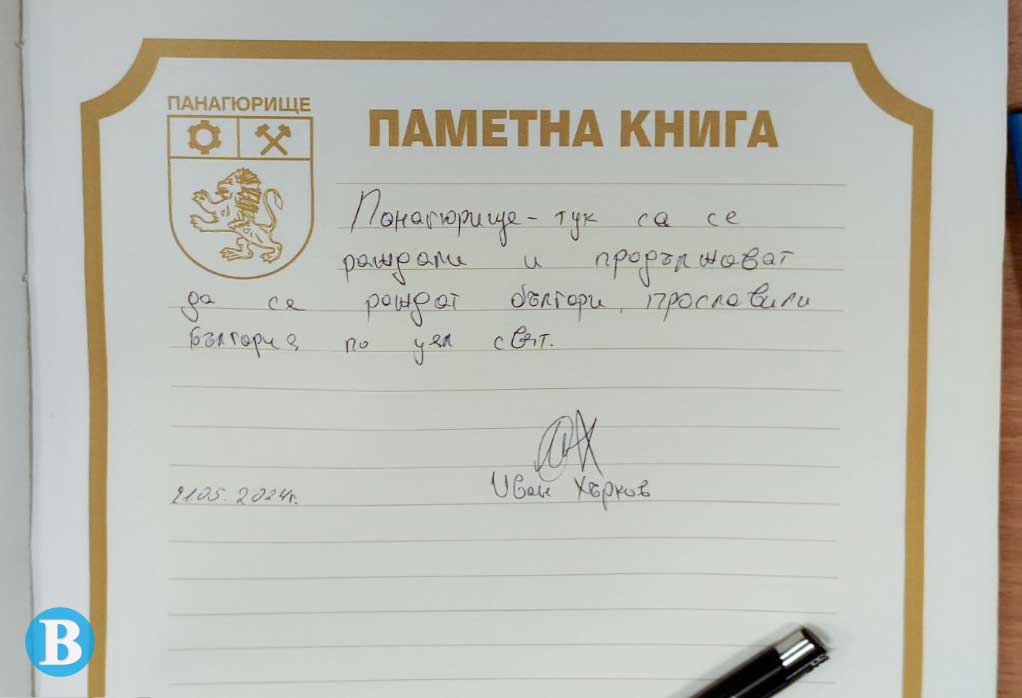 ПАНАГЮРИЩЕ
ПАМЕТНА КНИГА
Панагюрище - тук са се
раждали и продължават
да се раждат българи, прославили
България по цял свят.
21.05.2024г.
Иван Хърков
B